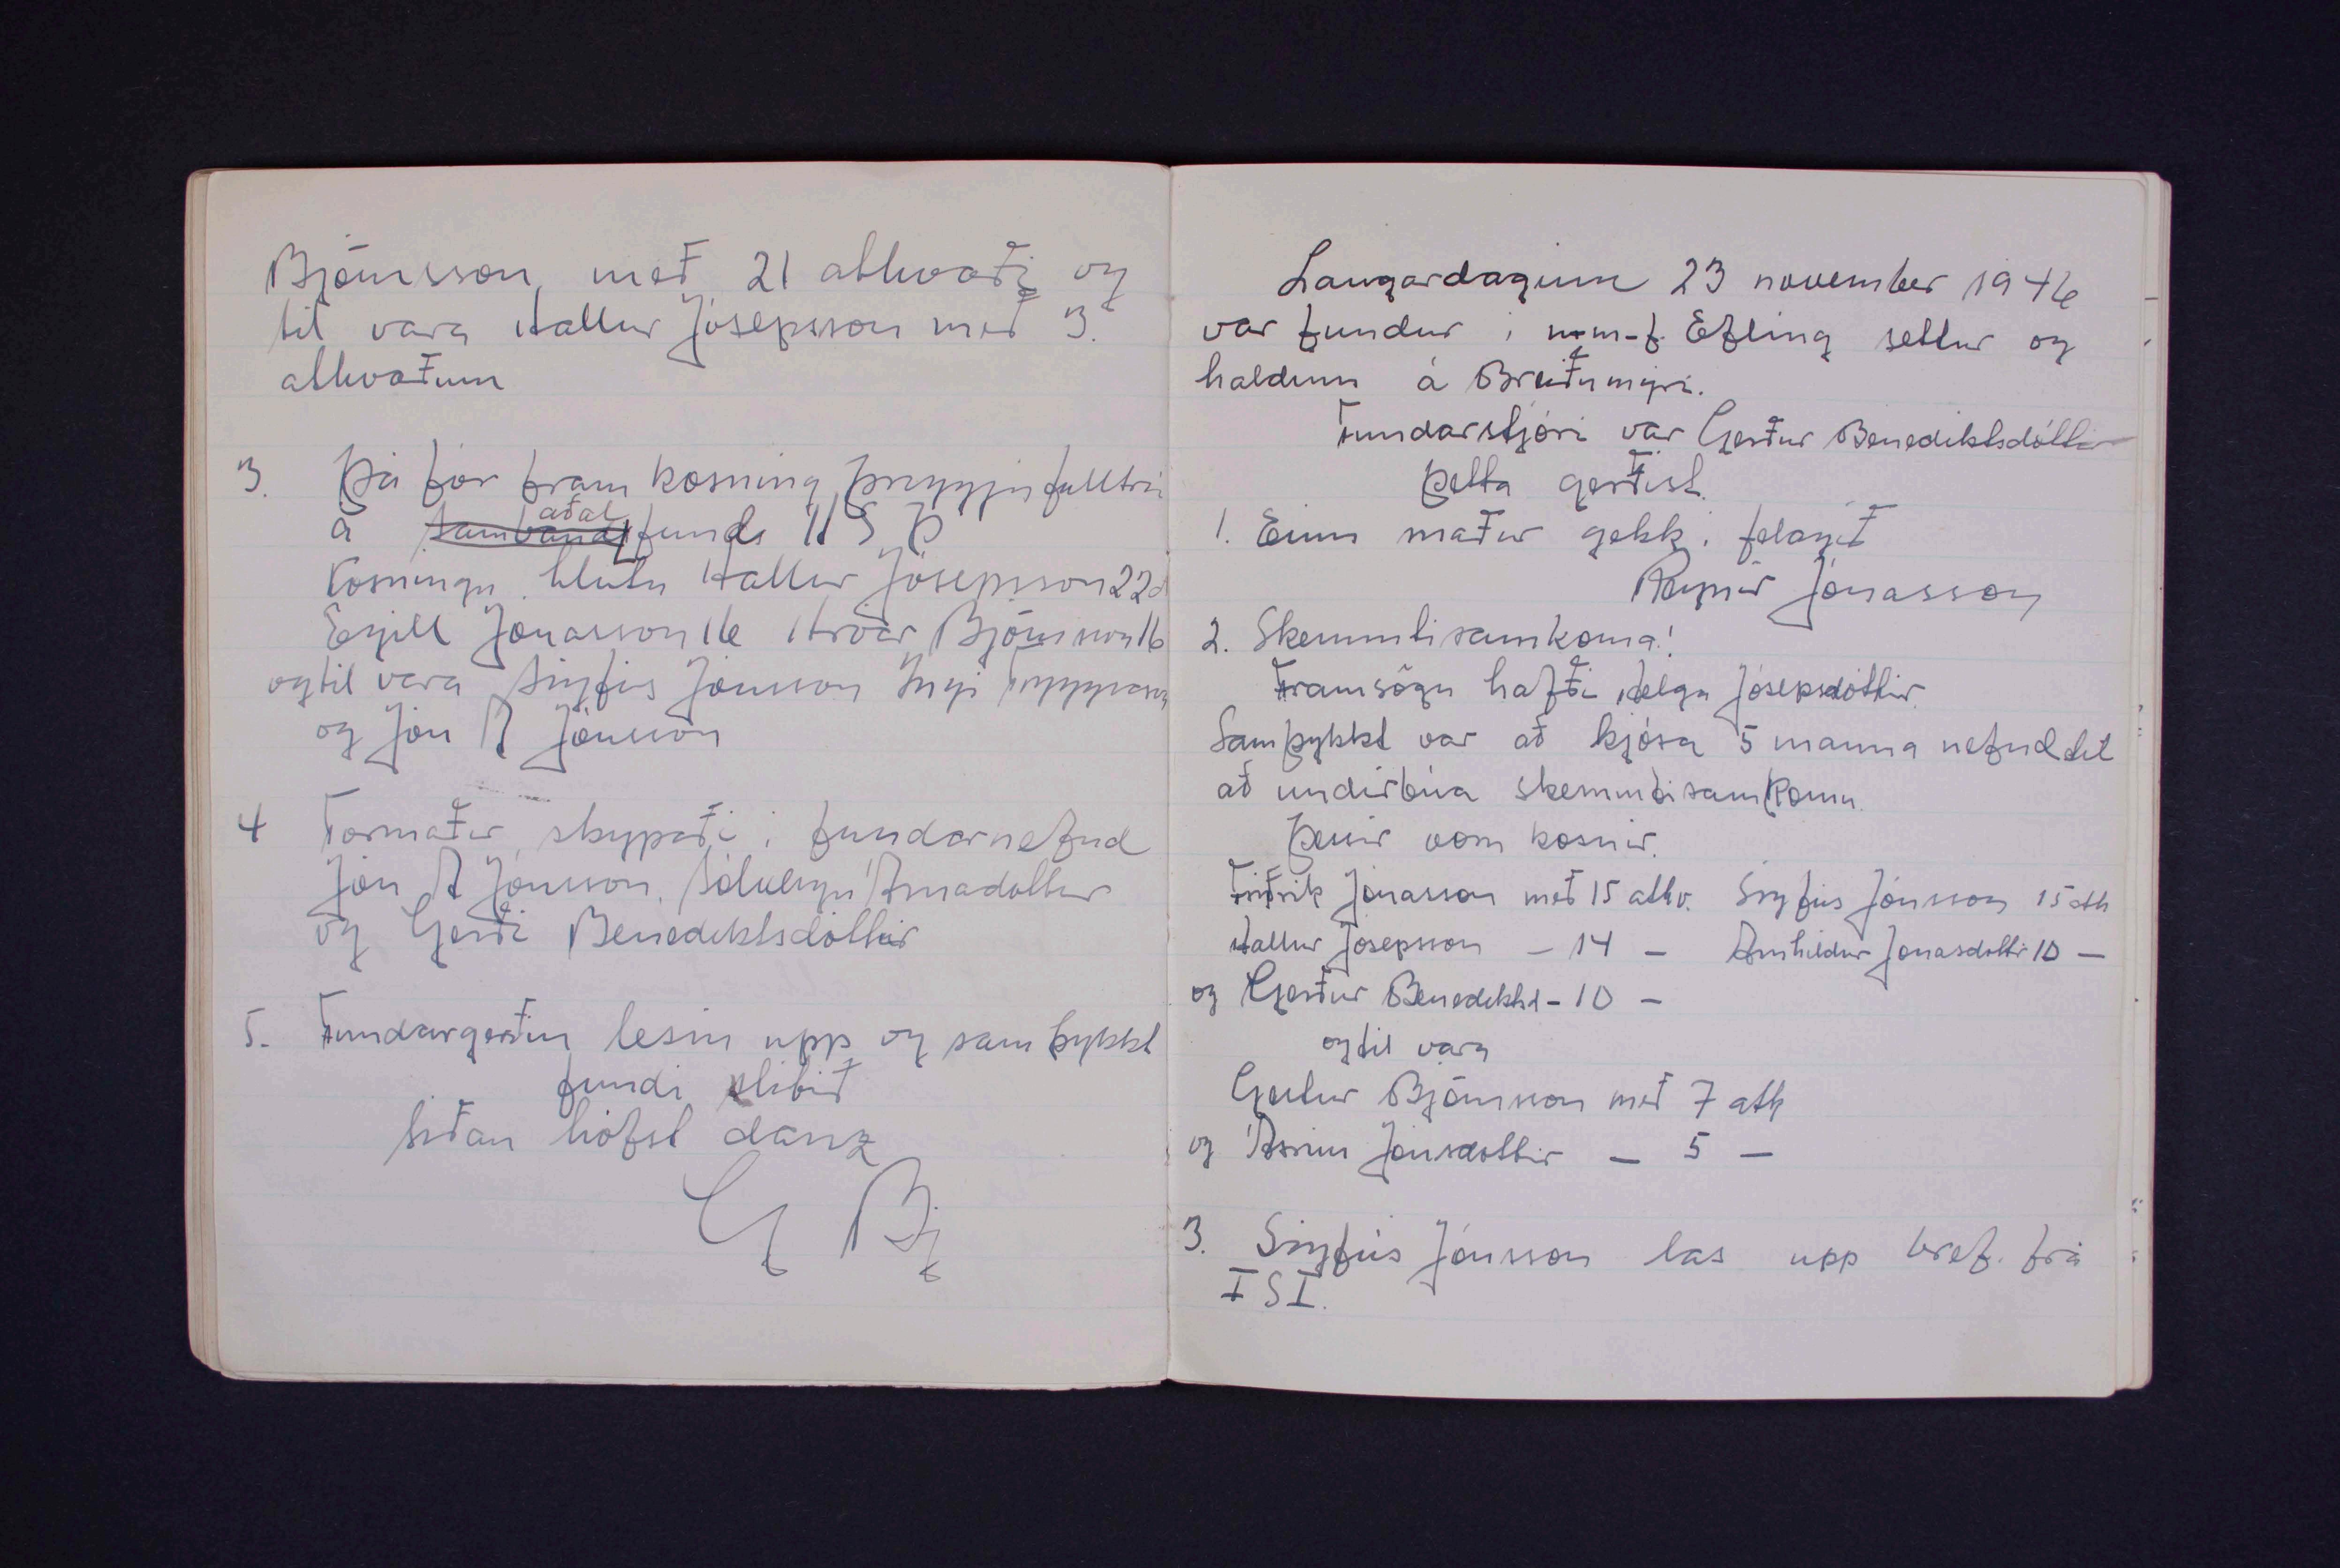 Björnsson með 21 atkvæði og
til vara Hallur Jósepsson með 3.
atkvæðum
3. Þá fór fram kosning þriggja fulltrúa
á sambands aðal fundi H S Þ
Kosningu hlutu Hallur Jósepsson 22
Egill Jónasson 16 Hróar Björnsson 16
og til vara Sigfús Jónsson Ingi Tryggvason
og Jón A Jónsson
4 Formaður skypaði í fundarnefnd
Jón A Jónsson. Sólveigu Árnadóttur
og Gerði Benediktsdóttir
5. Fundargerðin lesin upp og samþykkt
fundi slitið
Síðan hófst danz
G Bj
Laugardaginn 23 november 1946
var fundur í u-m-f. Efling settur og
haldinn á Breiðumýri.
Fundarstjóri var Gerður Benediktsdóttir
Þetta gerðist.
1. Einn maður gekk í felagið
Reynir Jónasson
2. Skemmtisamkoma!
Framsögu hafði Helga Jósepsdóttir.
Samþykkt var að kjósa 5 manna nefnd til
að undirbúa skemmtisamkomu.
Þessir voru kosnir.
Friðrik Jónasson með 15 atkv. Sigfús Jónsson 15 atk
Hallur Jósepsson – 14 – Arnhildur Jónasdóttir 10 –
og Gerður Benediktsd – 10 –
og til vara
Gestur Björnsson með 7 atk
og Ásrún Jónsdóttir – 5 –
3. Sigfús Jónsson las upp bref. frá
I S I.